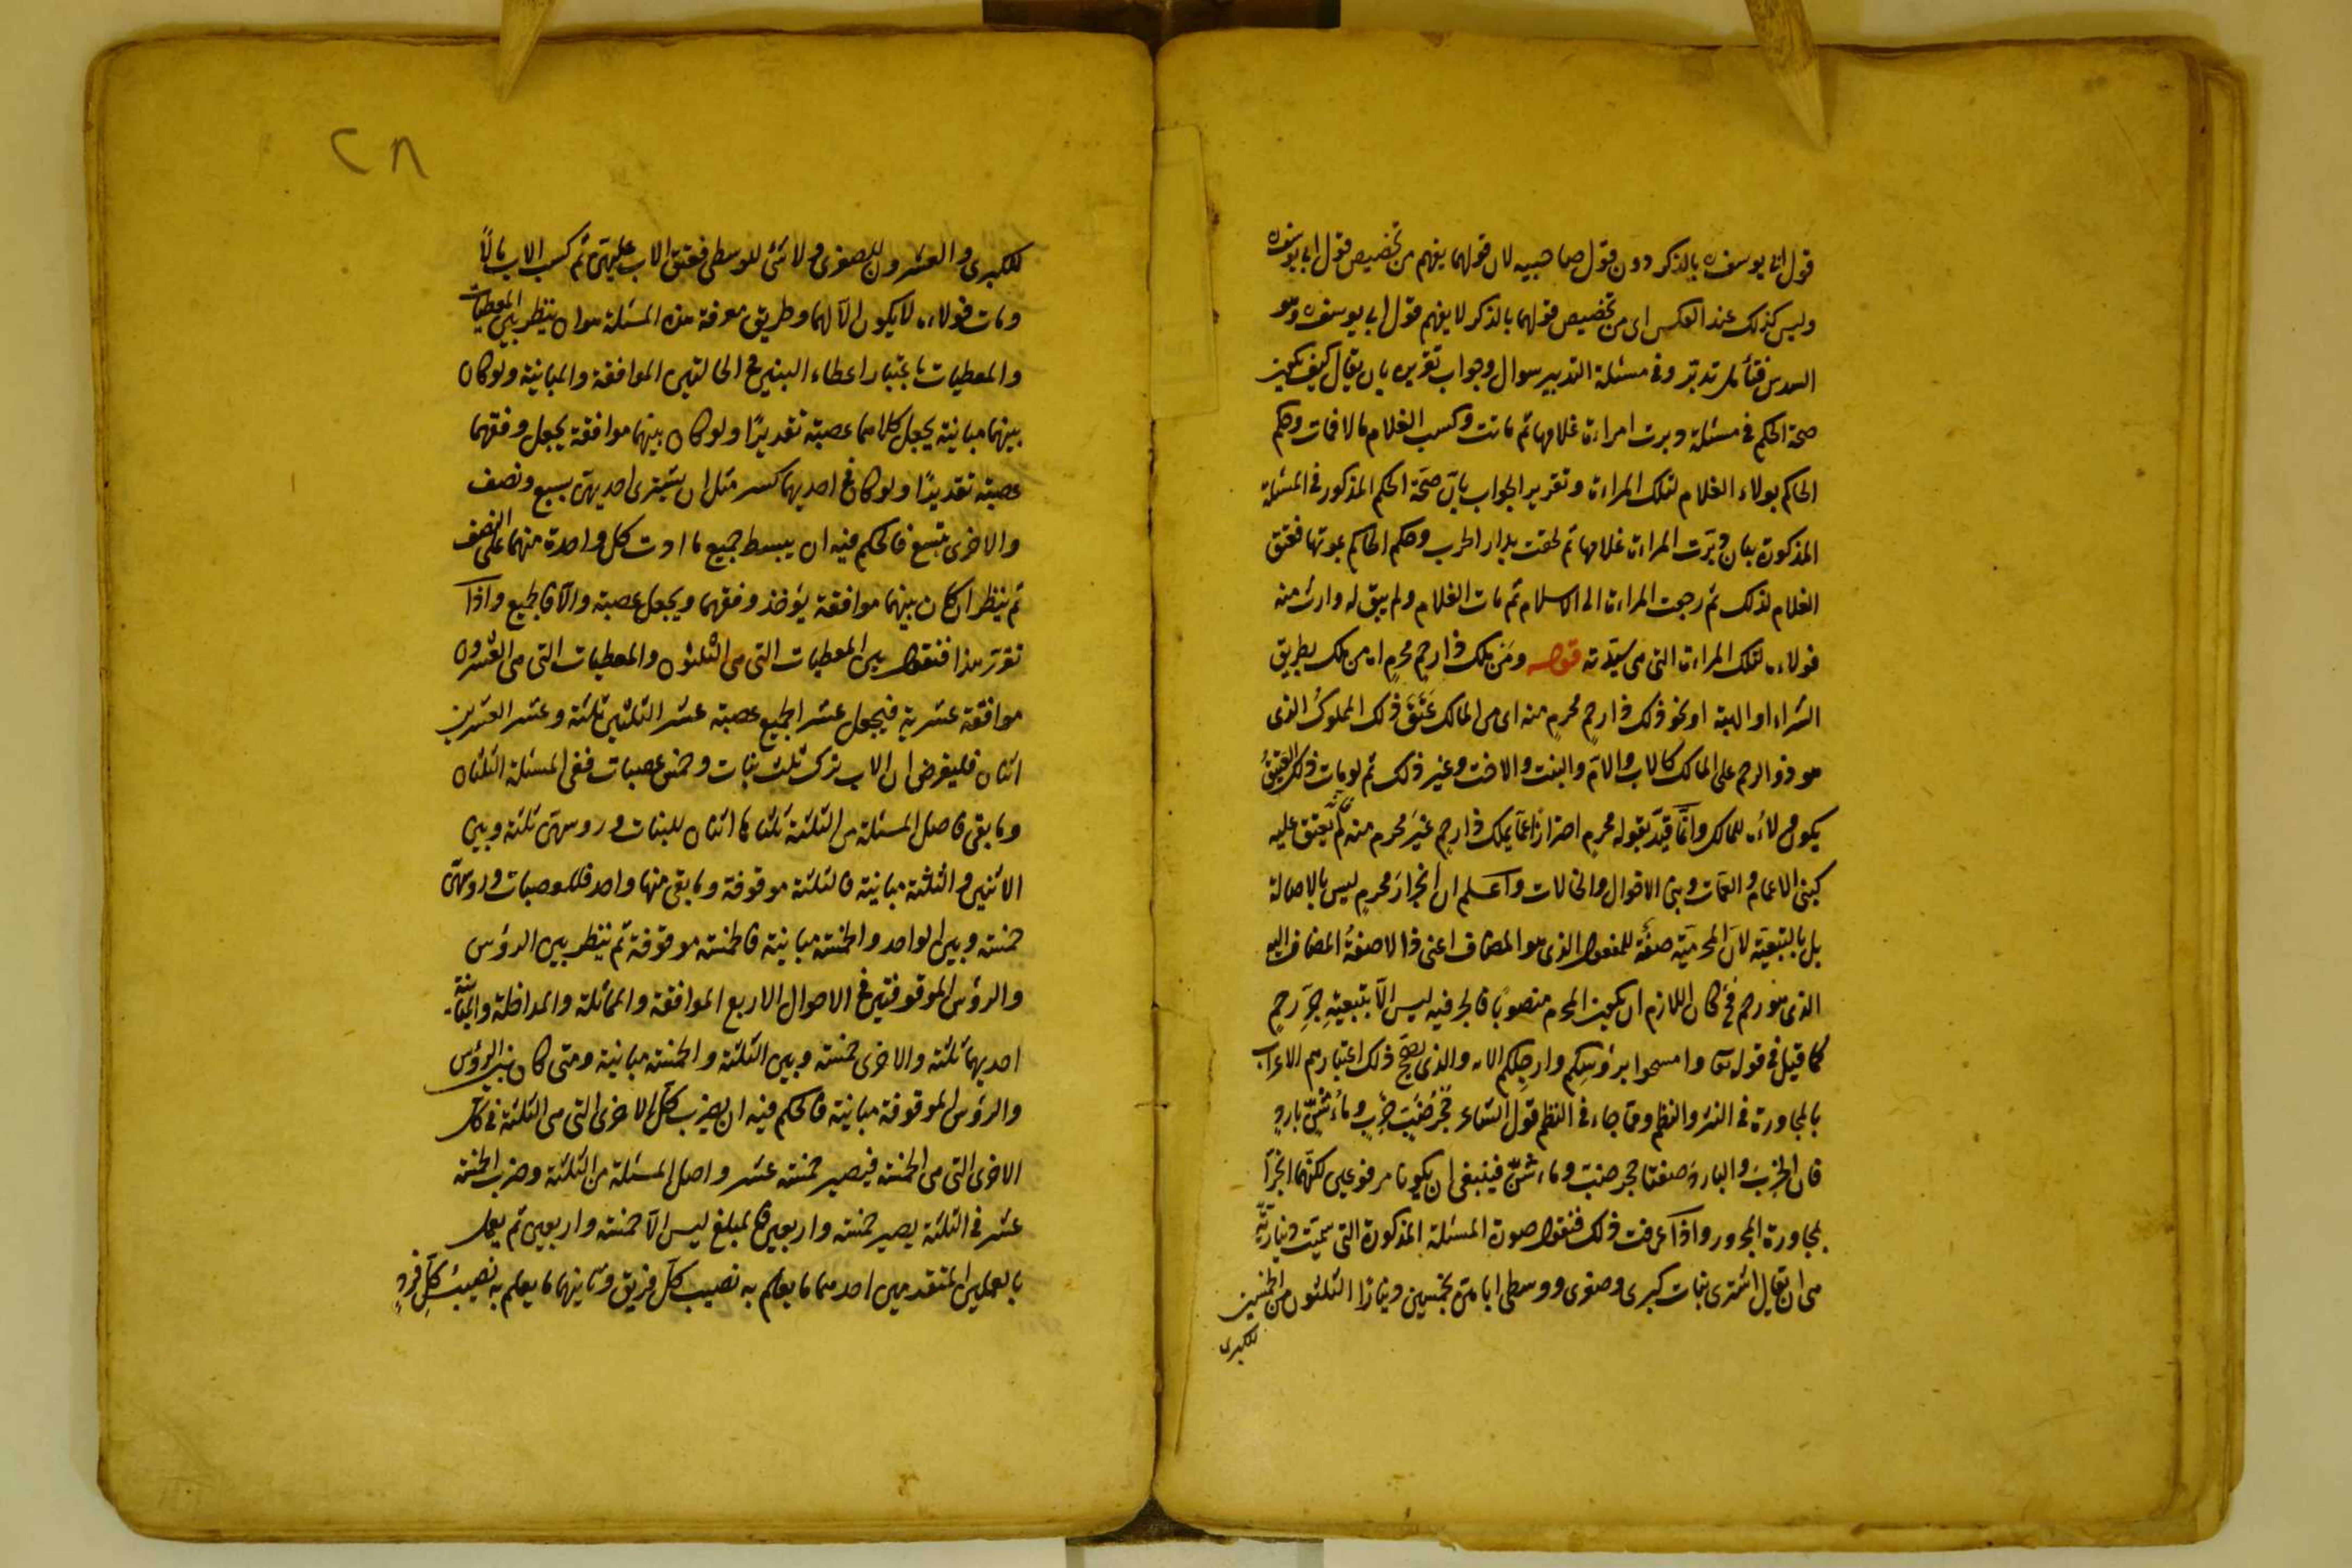 قول ابى يوسف ره بالذكر دون قول صاحبيه لان قولهما يفهم من تخصيص قول ابى يوسف ره
وليس كذلك عند العكس اى من تخصيص قولهما بالذكر لا يفهم قول ابى يوسف ره وهو
السدس فتأمل تدبر وفى مسئلة التدبير سوال وجواب تقريره بان يقال كيف يكون
صحة الحكم فى مسئلة دبرت امراءة غلامها ثم ماتت وكسب الغلام مالا فمات وحكم
الحاكم بولاء الغلام لتلك المراءة وتقرير الجواب بان صحة الحكم المذكور فى المسئلة
المذكورة بان دبرت المراءة غلامها ثم لحقت بدار الحرب وحكم الحاكم بموتها فعتق
الغلام لذلك ثم رجعت المراءة الى الاسلام ثم مات الغلام ولم يبق له وارث منه
فولاءه لتلك المراءة التى هى سيدته قوله ومن ملك ذا رحم محرم اه من ملك بطريق
الشراء او الهبة او نحو ذلك ذا رحم محرم منه اى من المالك عتق ذلك المملوك الذى
هو ذو الرحم على المالك كالاب والام والبنت والاخت وغير ذلك ثم لو مات ذلك العتيق
يكون ولاءه للمالك وانما قيد بقوله محرم احترازا عما يملك ذا رحم غير محرم منه فانه لم يعتق عليه
كبنى الاعمام والعمات وبنى الاخوال والخالات واعلم ان انجرار محرم ليس بالاصالة
بل بالتبعية لان المحرمية صفة للمفعول الذى هو المضاف اعنى ذا لا صفة المضاف اليه
الذى هو رحم فح كان اللازم ان يكون المحرم منصوبا فالجر فيه ليس الا بتبعية جر رحم
كما قيل فى قوله تعا وامسحوا برؤسكم وارجلكم الاه والذى يصحح ذلك اعتبارهم الاعراب
بالمجاورة فى النثر والنظم ومما جاء فى النظم قول الشاعر جحر ضب خرب وماء شن بارد
فان الخرب والبارد صفتا جحر ضب وماء شن فينبغى ان يكونا مرفوعين لكنهما انجرا
بمجاورة المجرور واذا عرفت ذلك فنقول صورة المسئلة المذكورة التى سميت دينارية
هى ان يقال اشترى بنات كبرى وصغرى ووسطى اباهن بخمسين دينارا الثلثون من الخمسين
للكبرى
٢٨
للكبرى والعشرون للصغرى ولا شئ للوسطى فعتق الاب عليهن ثم كسب الاب مالا
ومات فولاءه لا يكون الا لهما وطريق معرفة هذه المسئلة هو ان ينظر بين المعطيات
والمعطيات باعتبار اعطاء البنين فى الحالتين الموافقة والمباينة ولو كان
بينهما مباينة يجعل كلاهما عصبة تقديرا ولو كان بينهما موافقة يجعل وفقهما
عصبة تقديرا ولو كان فى احديهما كسر مثل ان يشترى احديهن بسبع ونصف
والاخرى بتسع فالحكم فيه ان يبسط جميع ما ادت كل واحدة منهما على النصف
ثم ينظر ان كان بينهما موافقة يؤخذ وفقهما ويجعل عصبة والا فالجميع واذا
تقرر هذا فنقول بين المعطيات التى هى الثلثون والمعطيات التى هى العشرون
موافقة عشرية فيجعل عشر الجميع عصبة عشر الثلثين ثلثة وعشر العشرين
اثنان فليفرض ان الاب ترك ثلث بنات وخمس عصبات ففى المسئلة الثلثان
وما بقى فاصل المسئلة من الثلثة ثلثاها اثنان للبنات ورؤسهن ثلثة وبين
الاثنين والثلثة مباينة فالثلثة موقوفة وما بقى منها واحد فللعصبات ورؤسهن
خمسة وبين الواحد والخمسة مباينة فالخمسة موقوفة ثم ينظر بين الرؤس
والرؤس الموقوفتين فى الاحوال الاربع الموافقة والمماثلة والمداخلة والمباينة
احديهما ثلثة والاخرى خمسة وبين الثلثة والخمسة مباينة ومتى كان بين الرؤس
والرؤس الموقوفة مباينة فالحكم فيه ان يضرب كل الاخرى التى هى الثلثة فى كل
الاخرى التى هى الخمسة فيصير خمسة عشر واصل المسئلة من الثلثة وضرب الخمسة
عشر فى الثلثة يصير خمسة واربعين فالمبلغ ليس الا خمسة واربعين ثم يعمل
بالعملين المتقدمين احدهما ما يعلم به نصيب كل فريق وثانيهما ما يعلم به نصيب كل فرد